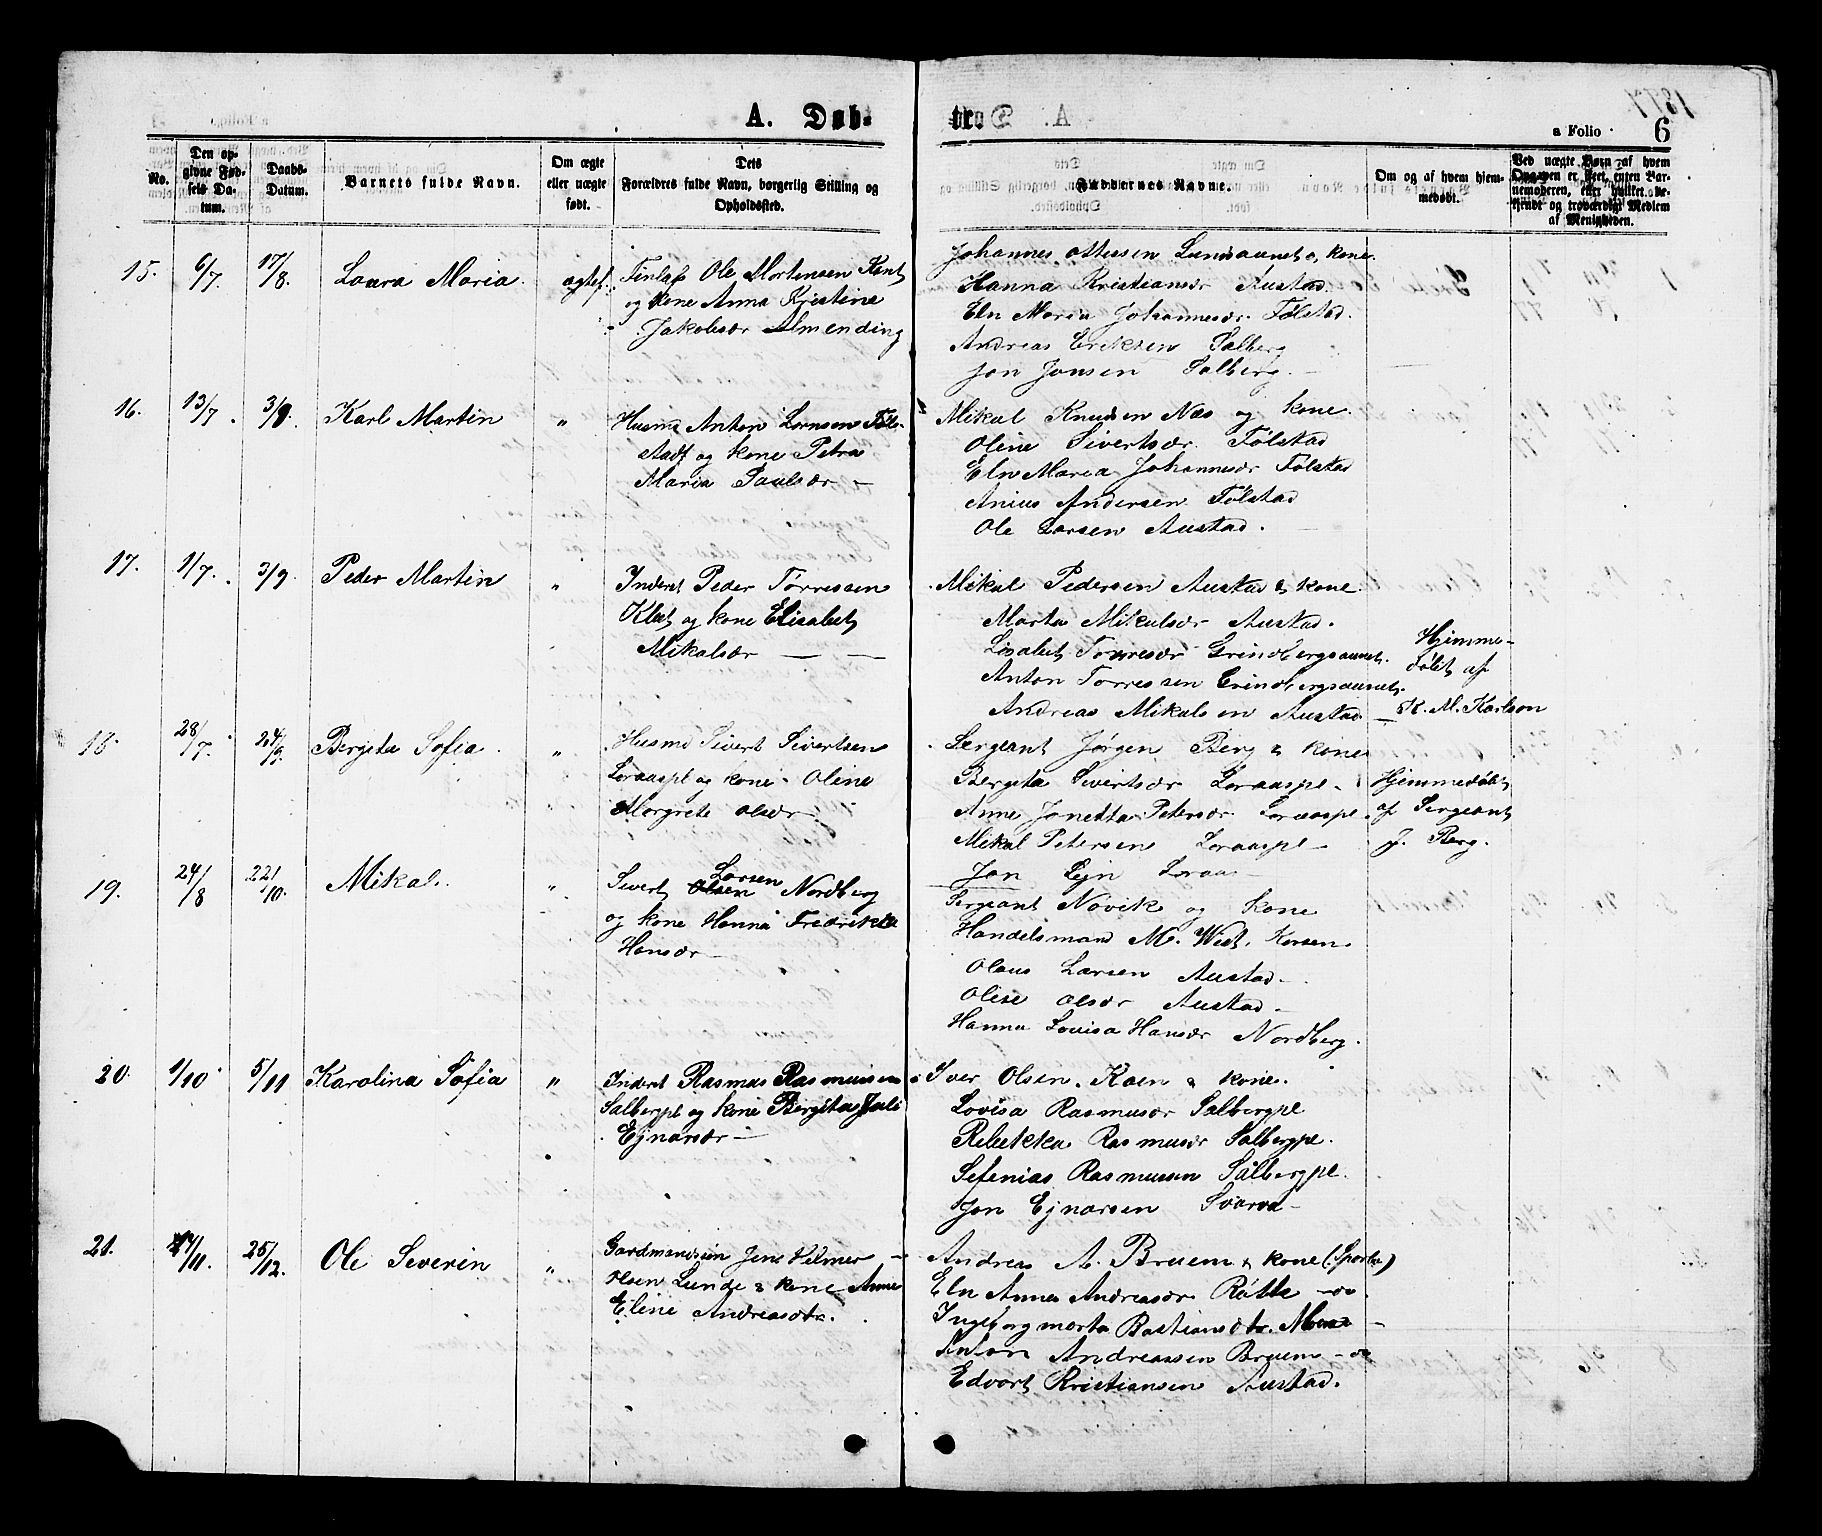 A. Døb-
tr.
a Folio
6
No.
Den op-
givne Fød-
sels Da-
tum.
Daabs-
Datum.
Barnets fulde Navn.
Om ægte
eller uægte
født.
Dets
Forældres fulde Navn, borgerlig Stilling og
Opholdssted.
Faddernes Navne.
Om og af hvem hjem-
medøbt.
Ved uægte Børn af hvem
Opgaven er skeet, enten Bar-
nemoderen, eller hvilket be-
kjendt og troværdigt Medlem
af Menigheden.
15. 6/7 17/8 Laura Maria ægtef.
Ole Mortensen
og kone Anna Kristine
Jakobsdr Almending
Johannes Ottersen Lundsaunet o, kone.
Hanna Kristiansdr Austad.
Eln Maria Johannesdr. Følstad.
Andreas Eriksen Salberg
Jon Jonsen Salberg.
16. 13/7 3/9. Karl Martin "
Husmd Anton Lornsen Føl-
stadt og kone Petra
Maria Paulsdr
Mikal Knudsen Næs og kone.
Oline Sivertsdr. Følstad
Eln Maria Johannesdr Følstad
Anius Andersen Følstad
Ole Larsen Austad.
17. 1/7. 3/9 Peder Martin "
Inderst Peder Torressen
Klet og kone Elisabet
Mikalsdr
Mikal Pedersen Austad & kone
Marta Mikalsdr Austad.
Lisabet Torresdr Grindbergsaunet.
Anton Torressen Grindbergsaunet.
Andreas Mikalsen Austad
Hjemme-
døbt af
K. M. Karlson
18. 28/7. 24/9. Bergita Sofia "
Husmd Sivert Sivertsen
Loraaspl og kone Oline
Margrete Olsdr
Sergeant Jørgen Berg & kone
Bergita Sivertsdr Loraaspl.
Anne Jonetta Petersdr Loraaspl.
Mikal Petersen Loraaspl
Jon Loraas
Hjemmedøbt
af Sergeant
J. Berg.
19. 24/8 22/10. Mikal. "
Sivert Larsen Nordberg
og kone Hanna Fredrikke
Hansdr
Sergeant Nøvik og kone
Handelsmand M. Wist, Korsen.
Olaus Larsen Austad
Olise Olsdr Austad
Hanna Lovisa Hansdr Nordberg.
20. 1/10 5/11 Karolina Sofia "
Inderst Rasmus Rasmussen
Salbergpl og kone Bergita Juli
Ejnarsdr
Iver Olsen Koen & kone.
Lovisa Rasmusdr Salbergpl
Rebekka Rasmusdr Salbergpl.
Sefenias Rasmussen Salbergpl.
Jon Ejnarsen Svarva
21. 25/12. Ole Severin "
Jens Hilmer
Olsen Lunde & kone Anne
Eline Andreasdtr.
Andreas A. Bruem & kone (Sparbu)
Eln Anna Andreasdr Røtte do.
Ingeborg Marta Bastiansdtr.
Anton Andreassen Bruem do
Edvart Kristiansen Austad.